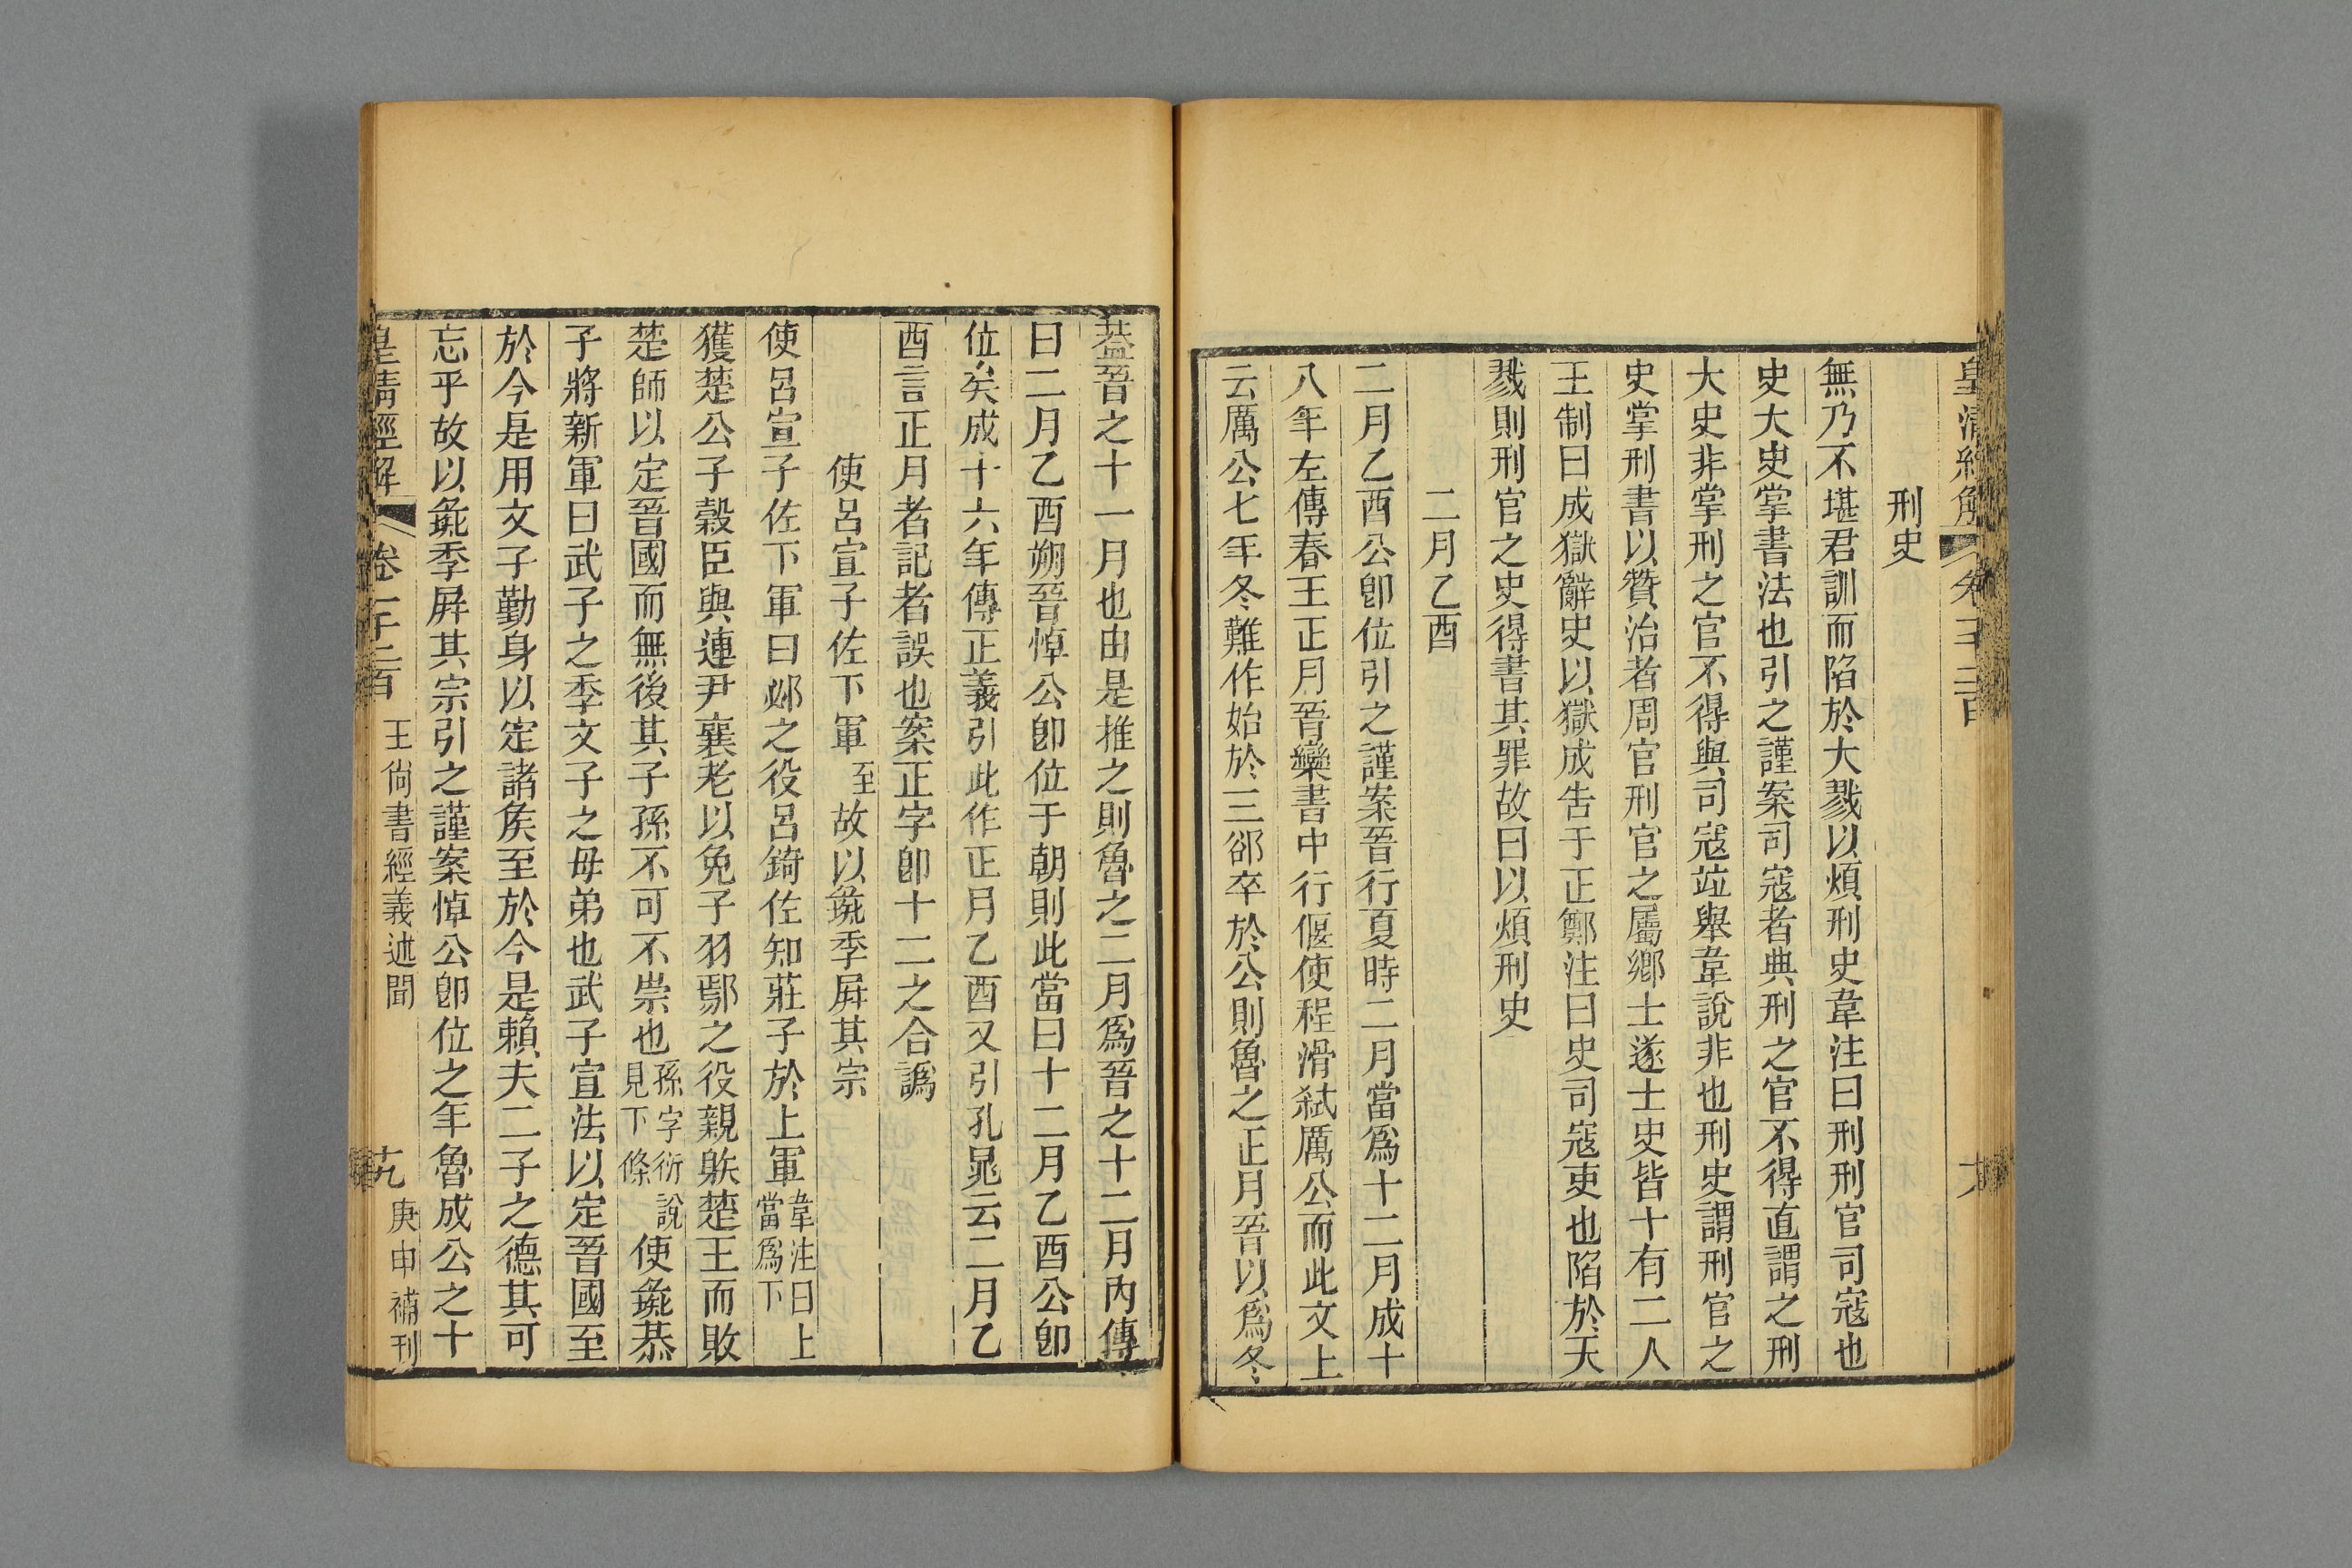 皇清經解 卷一千二百 十八
刑史
無乃不堪君訓而陷於大戮以煩刑史韋注曰刑刑官司寇也
史大史掌書法也引之謹案司寇者典刑之官不得直謂之刑
大史非掌刑之官不得與司寇竝舉韋說非也刑史謂刑官之
史掌刑書以贊治者周官刑官之屬鄉士遂士史皆十有二人
王制曰成獄辭史以獄成告于正鄭注曰史司寇吏也陷於大
戮則刑官之史得書其罪故曰以煩刑史
二月乙酉
二月乙酉公卽位引之謹案晉行夏時二月當爲十二月成十
八年左傳春王正月晉欒書中行偃使程滑弒厲公而此文上
云厲公七年冬難作始於三郤卒於公則魯之正月晉以爲冬
葢晉之十一月也由是推之則魯之二月爲晉之十二月內傳
曰二月乙酉朔晉悼公卽位于朝則此當曰十二月乙酉公卽
位矣成十六年傳正義引此作正月乙酉又引孔晁云二月乙
酉言正月者記者誤也案正字卽十二之合譌
使呂宣子佐下軍至故以彘季屛其宗
使呂宣子佐下軍曰邲之役呂錡佐知莊子於上軍韋注曰上當爲下
獲楚公子穀臣與連尹襄老以免子羽鄢之役親䠶楚王而敗
楚師以定晉國而無後其子孫不可不崇也孫字衍說見下條使彘恭
子將新軍曰武子之季文子之母弟也武子宣法以定晉國至
於今是用文子勤身以定諸矦至於今是賴夫二子之德其可
忘乎故以彘季屛其宗引之謹案悼公卽位之年魯成公之十
皇清經解 卷一千二百 王尙書經義述聞 十九 庚申補刊